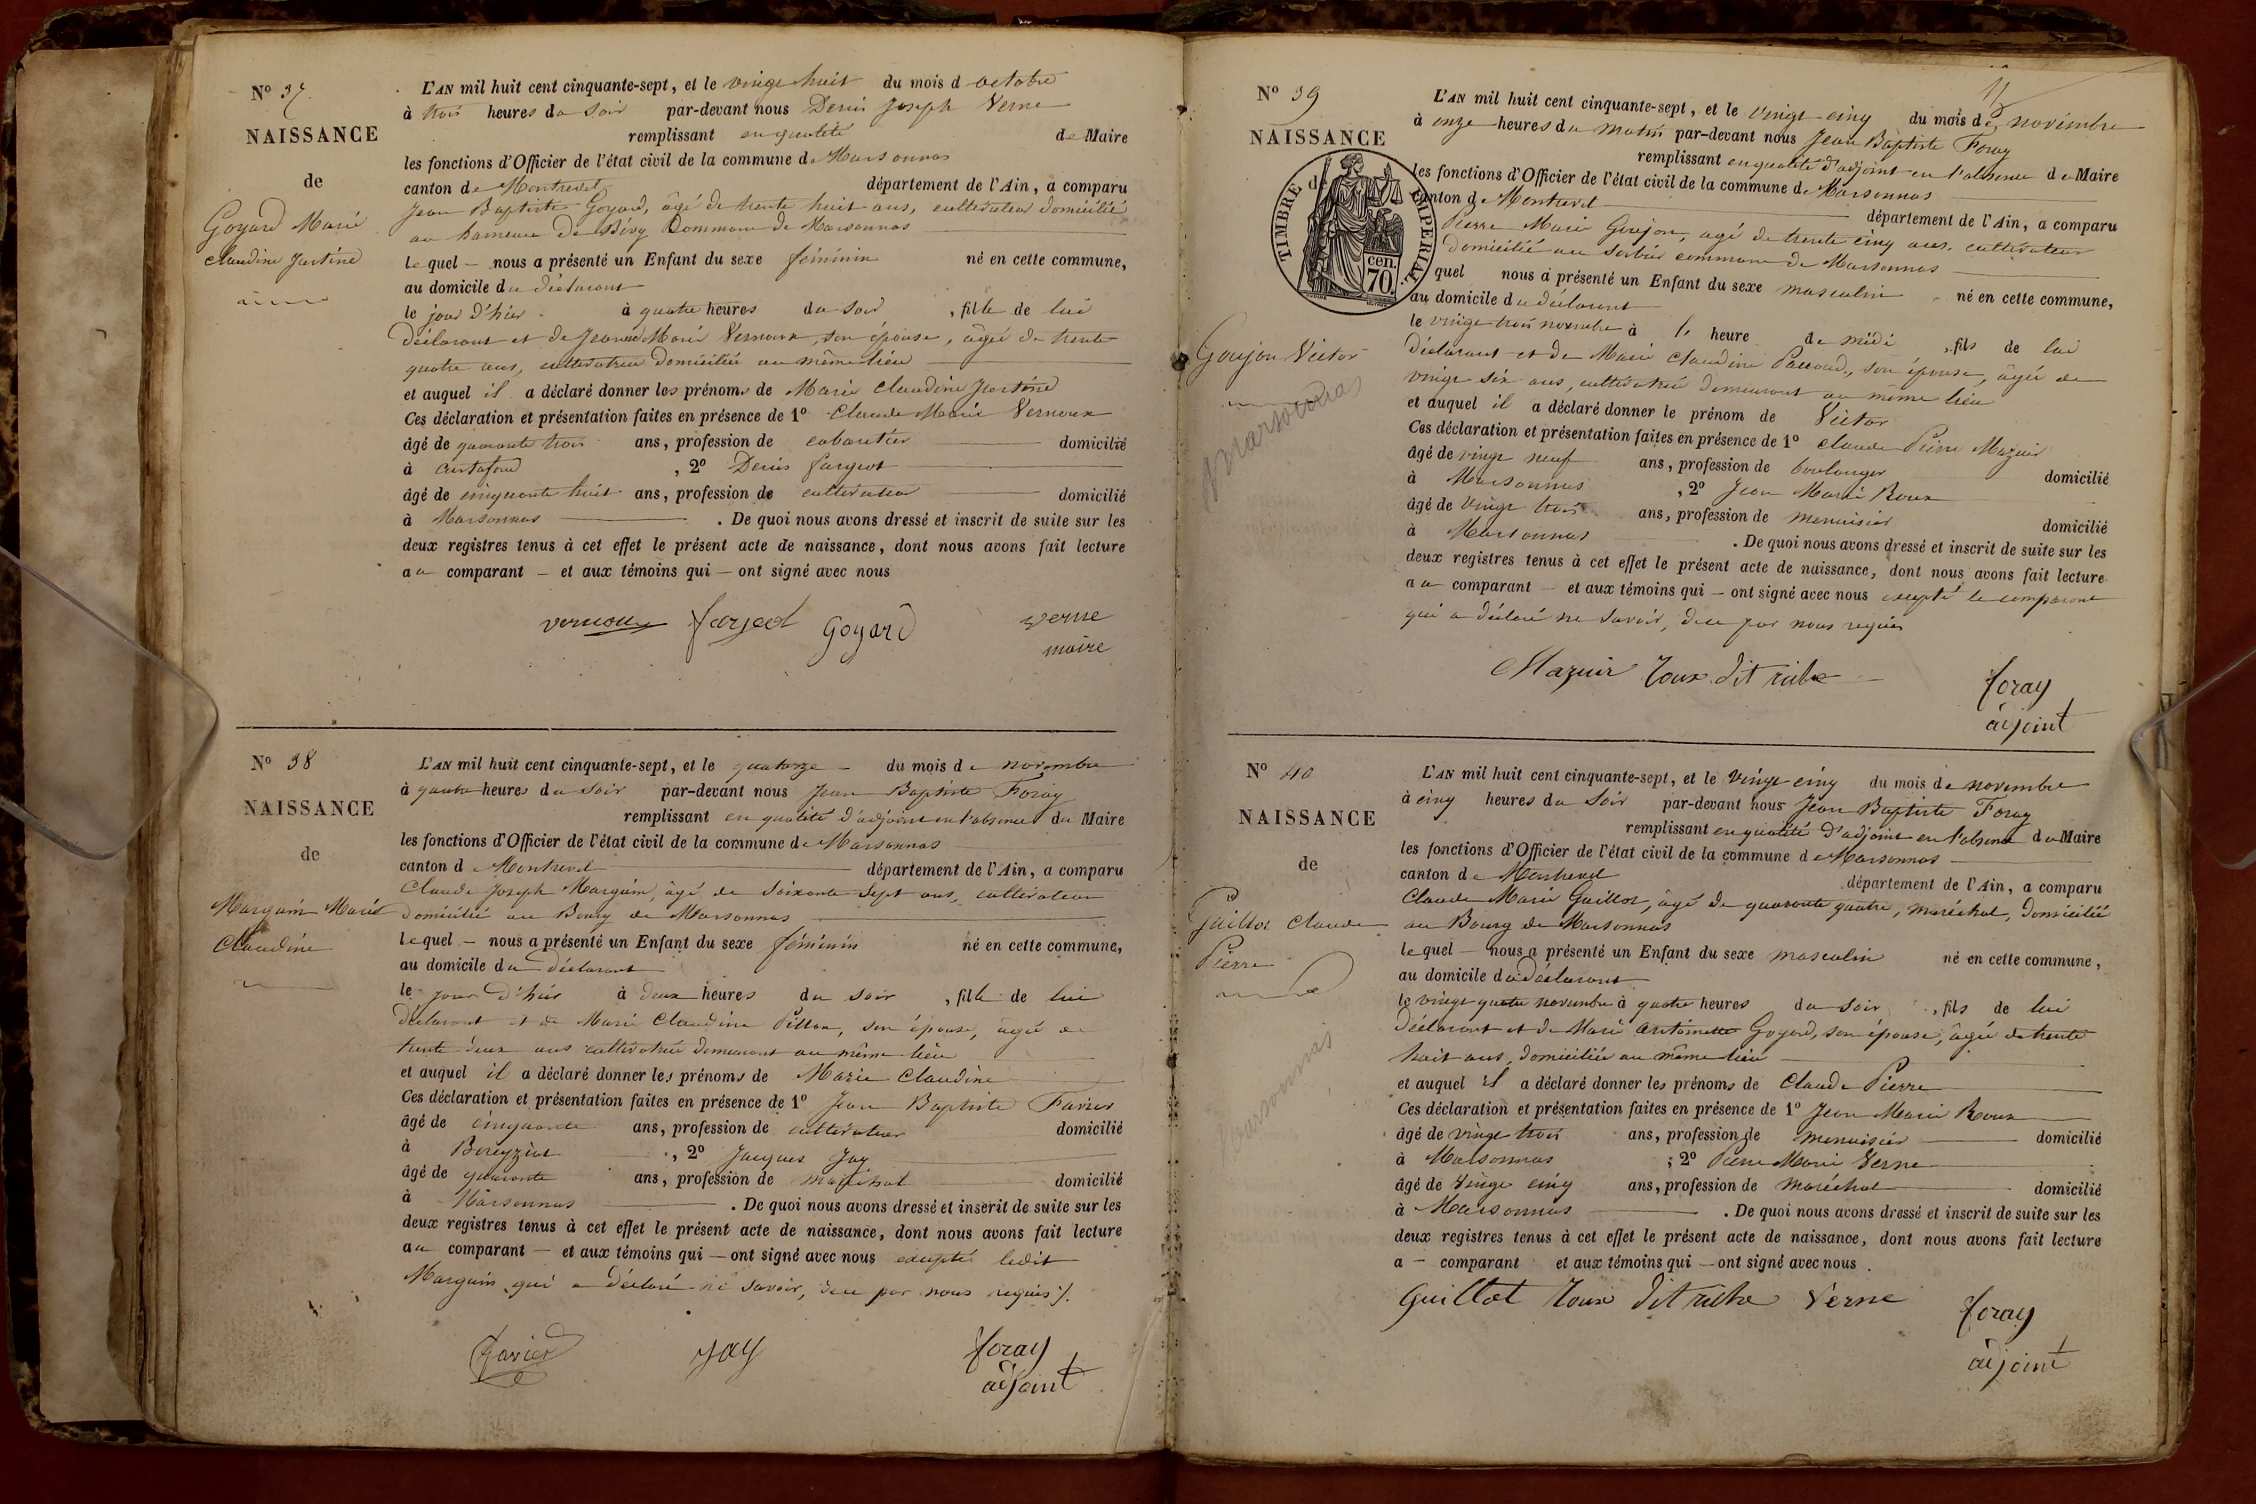 N° 37
NAISSANCE
de
Goyard Marie
Claudine Justine
L'AN mil huit cent cinquante-sept, et le vingt huit du mois d octobre
à trois heures du soir par-devant nous Denis Joseph Verne
remplissant en qualité de Maire
les fonctions d'Officier de l'état civil de la commune de Marsonnas
canton de Montrevel département de l'Ain, a comparu
Jean Baptiste Goyard, âgé de trente huit ans, cultivateur domicilié
au hameau de Commune de Marsonnas
lequel — nous a présenté un Enfant du sexe féminin né en cette commune,
au domicile du déclarant
le jour d'hier à quatre heures du soir, fille de lui
déclarant et de Jeanne Marie Vernoux, son épouse, âgée de trente
quatre ans, cultivatrice domiciliée au même lieu
et auquel il a déclaré donner les prénoms de Marie Claudine Justine
Ces déclaration et présentation faites en présence de 1° Claude Marie Vernoux
âgé de quarante trois ans, profession de cabaretier domicilié
à Curtafond, 2° Denis Fargeot
âgé de cinquante huit ans, profession de cultivateur domicilié
à Marsonnas. De quoi nous avons dressé et inscrit de suite sur les
deux registres tenus à cet effet le présent acte de naissance, dont nous avons fait lecture
au comparant — et aux témoins qui — ont signé avec nous
vernoux fargeot Goyard verne
maire
N° 38
NAISSANCE
de
Marguin Marie
Claudine
L'AN mil huit cent cinquante-sept, et le quatorze du mois de novembre
à quatre heures du soir par-devant nous Jean Baptiste Foray
remplissant en qualité d'adjoint en l'absence du Maire
les fonctions d'Officier de l'état civil de la commune de Marsonnas
canton de Montrevel département de l'Ain, a comparu
Claude Joseph Marguin, âgé de soixante sept ans, cultivateur
domicilié au Bourg de Marsonnas
lequel — nous a présenté un Enfant du sexe féminin né en cette commune,
au domicile du déclarant
le jour d'hier à deux heures du soir, fille de lui
déclarant et de Marie Claudine Pillon, son épouse, âgée de
trente deux ans cultivatrice demeurant au même lieu
et auquel il a déclaré donner les prénoms de Marie Claudine
Ces déclaration et présentation faites en présence de 1° Jean Baptiste Favier
âgé de cinquante ans, profession de cultivateur domicilié
à Béreyziat, 2° Jacques Jay
âgé de quarante ans, profession de maréchal domicilié
à Marsonnas. De quoi nous avons dressé et inscrit de suite sur les
deux registres tenus à cet effet le présent acte de naissance, dont nous avons fait lecture
au comparant — et aux témoins qui — ont signé avec nous excepté ledit
Marguin qui a déclaré ne savoir, de ce par nous requis /.
favier jay foray
adjoint
N° 39
NAISSANCE
de
TIMBRE IMPERIAL
70 cen.
Goujon Victor
marsonnas
L'AN mil huit cent cinquante-sept, et le vingt cinq du mois de novembre
à onze heures du matin par-devant nous Jean Baptiste Foray
remplissant en qualité d'adjoint en l'absence du Maire
les fonctions d'Officier de l'état civil de la commune de Marsonnas
canton de Montrevel département de l'Ain, a comparu
Pierre Marie Goujon, âgé de trente cinq ans, cultivateur
domicilié au Sorbier commune de Marsonnas
quel nous a présenté un Enfant du sexe masculin né en cette commune,
au domicile du déclarant
le vingt trois novembre à l' heure de midi, fils de lui
déclarant et de Marie Claudine Paccoud, son épouse, âgée de
vingt six ans, cultivatrice demeurant au même lieu
et auquel il a déclaré donner le prénom de Victor
Ces déclaration et présentation faites en présence de 1° Claude Pierre Mazuir
âgé de vingt neuf ans, profession de boulanger domicilié
à Marsonnas, 2° Jean Marie Roux
âgé de vingt trois ans, profession de menuisier domicilié
à Marsonnas. De quoi nous avons dressé et inscrit de suite sur les
deux registres tenus à cet effet le présent acte de naissance, dont nous avons fait lecture
au comparant — et aux témoins qui — ont signé avec nous excepté le comparant
qui a déclaré ne savoir, de ce par nous requis
Mazuir roux dit rube foray
adjoint
N° 40
NAISSANCE
de
Guillot Claude
Pierre
marsonnas
L'AN mil huit cent cinquante-sept, et le vingt cinq du mois de novembre
à cinq heures du soir par-devant nous Jean Baptiste Foray
remplissant en qualité d'adjoint en l'absence du Maire
les fonctions d'Officier de l'état civil de la commune de Marsonnas
canton de Montrevel département de l'Ain, a comparu
Claude Marie Guillot, âgé de quarante quatre, maréchal, domicilié
au Bourg de Marsonnas
lequel — nous a présenté un Enfant du sexe masculin né en cette commune,
au domicile du déclarant
le vingt quatre novembre à quatre heures du soir, fils de lui
déclarant et de Marie Antoinette Goyard, son épouse, âgée de trente
huit ans, domiciliée au même lieu
et auquel il a déclaré donner les prénoms de Claude Pierre
Ces déclaration et présentation faites en présence de 1° Jean Marie Roux
âgé de vingt trois ans, profession de menuisier domicilié
à Marsonnas, 2° Pierre Marie Verne
âgé de vingt cinq ans, profession de maréchal domicilié
à Marsonnas. De quoi nous avons dressé et inscrit de suite sur les
deux registres tenus à cet effet le présent acte de naissance, dont nous avons fait lecture
a — comparant et aux témoins qui — ont signé avec nous.
Guillot roux dit rube Verne foray
adjoint